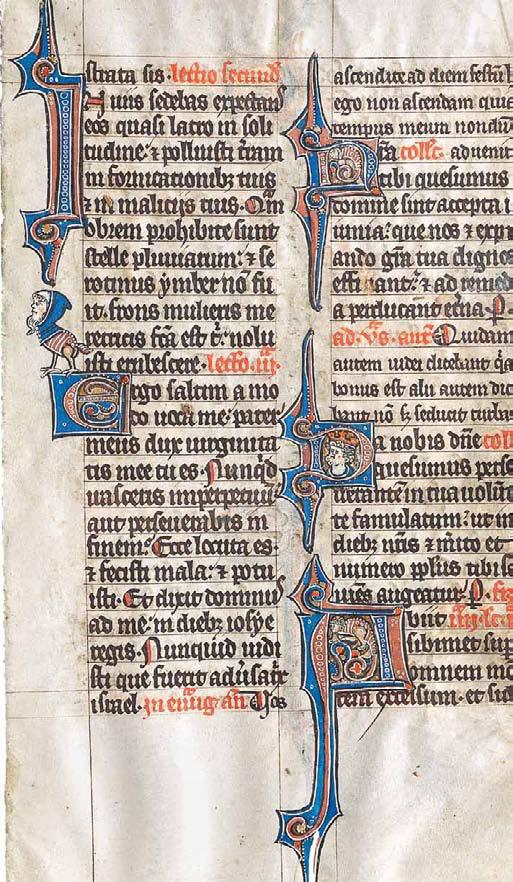 strata sis. lectio secund
In uiis sedebas expectans
eos quasi latro in soli
tudine: ⁊ polluisti t̄ram
in fornicationibꝫ tuis
⁊ in malicijs tuis. Qm̄
obrem prohibite sunt
stelle pluuiarum: ⁊ se
rotinus ymber nō fu
it. frons mulieris me
retricis fc̄a est t̄: nolu
isti erubescere. lectio iij.
Ergo saltim a mo
do uoca me: pater
meus dux uirginita
tis mee tu es. Nunqͥd
irasceris inperpetuū
aut perseuerabis in
finem: Ecce locuta es.
⁊ fecisti mala: ⁊ potu
isti. Et dixit dominus
ad me: in diebꝫ iosye
regis. Nunquid uidi
sti que fuerit adu̓satͥx
israel. In euāg añ Vos
ascendite ad diem festū
ego non ascendam quia
tempus meum nondū
sta coll'. adueniat
tibi quesumus
domine sint accepta i
iunia: que nos ⁊ expi
ando gr̄a tua dignos
efficiant: ⁊ ad remed
a perducant et̄na. P.
ad. Vs. ant̄. Quidam
autem iudei dicebant qͥa
bonus est alii autem dic
bant nō s; seducit turbas
Da nobis dn̄e coll
quesumus perse
uerantē in tua uolūta
te famulatum: ut in
diebꝫ nr̄is ⁊ mīto et
numero pp̄lus tibi se
uiēs augeatur. P.
Abiit
sibimet sup
omnem mo
tem excelsum. et su